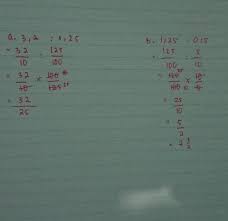 a. 3,2 : 1,25
= 32/10 : 125/100
= 32/10 × 100/125
= 32/25
b. 1,25 : 0,5
= 125/100 : 5/10
= 125/100 × 10/5
= 25/10
= 5/2
= 2 1/2